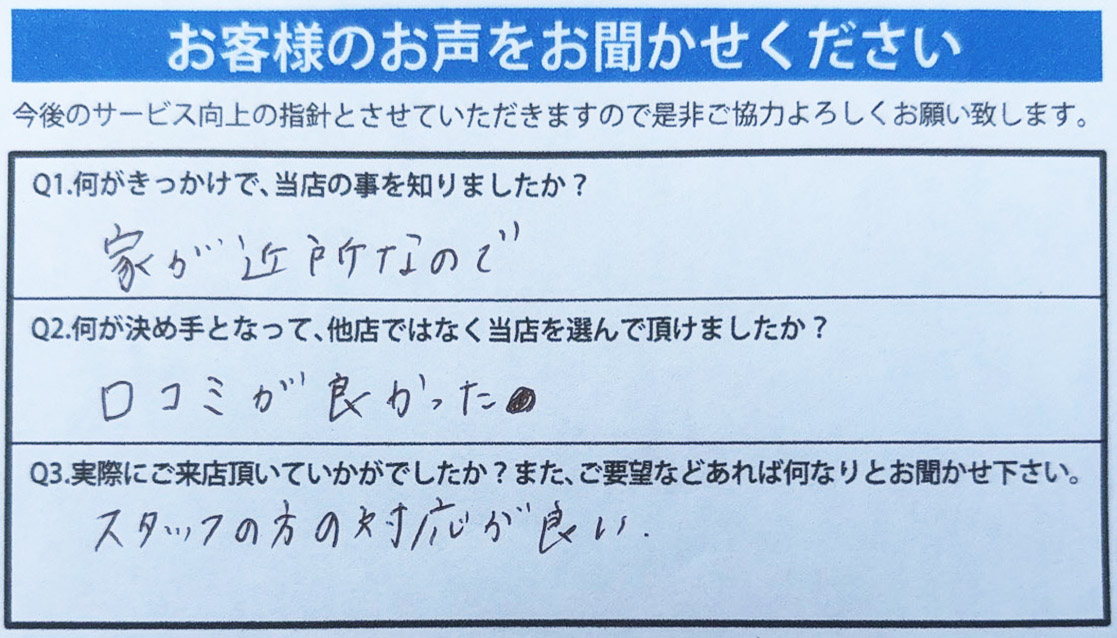 お客様のお声をお聞かせください
今後のサービス向上の指針とさせていただきますので是非ご協力よろしくお願い致します。
Q1.何がきっかけで、当店の事を知りましたか？
家が近所なので
Q2.何が決め手となって、他店ではなく当店を選んで頂けましたか？
口コミが良かった
Q3.実際にご来店頂いていかがでしたか？また、ご要望などあれば何なりとお聞かせ下さい。
スタッフの方の対応が良い.